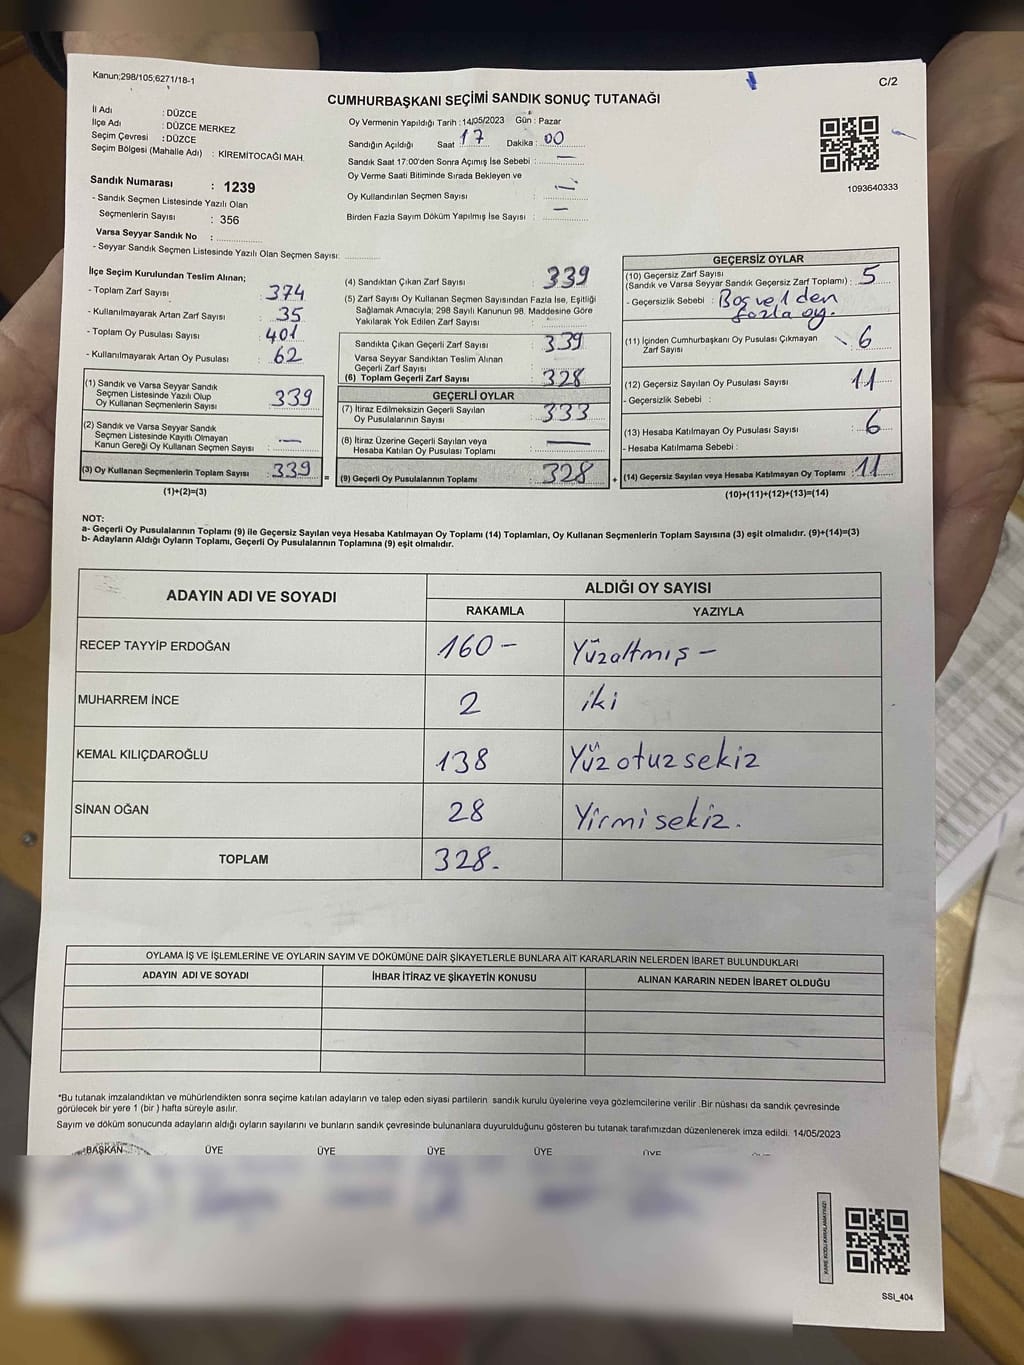 Kanun;298/105;6271/18-1
C/2
CUMHURBAŞKANI SEÇİMİ SANDIK SONUÇ TUTANAĞI
İl Adı : DÜZCE
İlçe Adı : DÜZCE MERKEZ
Seçim Çevresi : DÜZCE
Seçim Bölgesi (Mahalle Adı) : KİREMİTOCAĞI MAH.
Sandık Numarası : 1239
- Sandık Seçmen Listesinde Yazılı Olan
Seçmenlerin Sayısı : 356
Varsa Seyyar Sandık No :
- Seyyar Sandık Seçmen Listesinde Yazılı Olan Seçmen Sayısı:
Oy Vermenin Yapıldığı Tarih : 14/05/2023 Gün : Pazar
Sandığın Açıldığı Saat : 17 Dakika : 00
Sandık Saat 17:00'den Sonra Açımış İse Sebebi : —
Oy Verme Saati Bitiminde Sırada Bekleyen ve
Oy Kullandırılan Seçmen Sayısı : —
Birden Fazla Sayım Döküm Yapılmış İse Sayısı : —
1093640333
İlçe Seçim Kurulundan Teslim Alınan;
- Toplam Zarf Sayısı : 374
- Kullanılmayarak Artan Zarf Sayısı : 35
- Toplam Oy Pusulası Sayısı : 401
- Kullanılmayarak Artan Oy Pusulası : 62
(1) Sandık ve Varsa Seyyar Sandık
Seçmen Listesinde Yazılı Olup
Oy Kullanan Seçmenlerin Sayısı : 339
(2) Sandık ve Varsa Seyyar Sandık
Seçmen Listesinde Kayıtlı Olmayan
Kanun Gereği Oy Kullanan Seçmen Sayısı : —
(3) Oy Kullanan Seçmenlerin Toplam Sayısı : 339
(1)+(2)=(3)
=
(4) Sandıktan Çıkan Zarf Sayısı : 339
(5) Zarf Sayısı Oy Kullanan Seçmen Sayısından Fazla İse, Eşitliği
Sağlamak Amacıyla; 298 Sayılı Kanunun 98. Maddesine Göre
Yakılarak Yok Edilen Zarf Sayısı :
Sandıkta Çıkan Geçerli Zarf Sayısı : 339
Varsa Seyyar Sandıktan Teslim Alınan
Geçerli Zarf Sayısı :
(6) Toplam Geçerli Zarf Sayısı : 328
GEÇERLİ OYLAR
(7) İtiraz Edilmeksizin Geçerli Sayılan
Oy Pusulalarının Sayısı : 333
(8) İtiraz Üzerine Geçerli Sayılan veya
Hesaba Katılan Oy Pusulası Toplamı : —
(9) Geçerli Oy Pusulalarının Toplamı : 328
+
GEÇERSİZ OYLAR
(10) Geçersiz Zarf Sayısı
(Sandık ve Varsa Seyyar Sandık Geçersiz Zarf Toplamı) : 5
- Geçersizlik Sebebi : Boş ve 1 den
fazla oy.
(11) İçinden Cumhurbaşkanı Oy Pusulası Çıkmayan
Zarf Sayısı : 6
(12) Geçersiz Sayılan Oy Pusulası Sayısı : 11
- Geçersizlik Sebebi :
(13) Hesaba Katılmayan Oy Pusulası Sayısı : 6
- Hesaba Katılmama Sebebi :
(14) Geçersiz Sayılan veya Hesaba Katılmayan Oy Toplamı : 11
(10)+(11)+(12)+(13)=(14)
NOT:
a- Geçerli Oy Pusulalarının Toplamı (9) ile Geçersiz Sayılan veya Hesaba Katılmayan Oy Toplamı (14) Toplamları, Oy Kullanan Seçmenlerin Toplam Sayısına (3) eşit olmalıdır. (9)+(14)=(3)
b- Adayların Aldığı Oyların Toplamı, Geçerli Oy Pusulalarının Toplamına (9) eşit olmalıdır.
ADAYIN ADI VE SOYADI ALDIĞI OY SAYISI
RAKAMLA YAZIYLA
RECEP TAYYİP ERDOĞAN 160 – Yüzaltmış –
MUHARREM İNCE 2 iki
KEMAL KILIÇDAROĞLU 138 Yüz otuz sekiz
SİNAN OĞAN 28 Yirmi sekiz.
TOPLAM 328.
OYLAMA İŞ VE İŞLEMLERİNE VE OYLARIN SAYIM VE DÖKÜMÜNE DAİR ŞİKAYETLERLE BUNLARA AİT KARARLARIN NELERDEN İBARET BULUNDUKLARI
ADAYIN ADI VE SOYADI İHBAR İTİRAZ VE ŞİKAYETİN KONUSU ALINAN KARARIN NEDEN İBARET OLDUĞU
*Bu tutanak imzalandıktan ve mühürlendikten sonra seçime katılan adayların ve talep eden siyasi partilerin sandık kurulu üyelerine veya gözlemcilerine verilir .Bir nüshası da sandık çevresinde
görülecek bir yere 1 (bir ) hafta süreyle asılır.
Sayım ve döküm sonucunda adayların aldığı oyların sayılarını ve bunların sandık çevresinde bulunanlara duyurulduğunu gösteren bu tutanak tarafımızdan düzenlenerek imza edildi. 14/05/2023
BAŞKAN ÜYE ÜYE ÜYE ÜYE ÜYE
KARE KODU KARALAMAYINIZ!
SSI_404